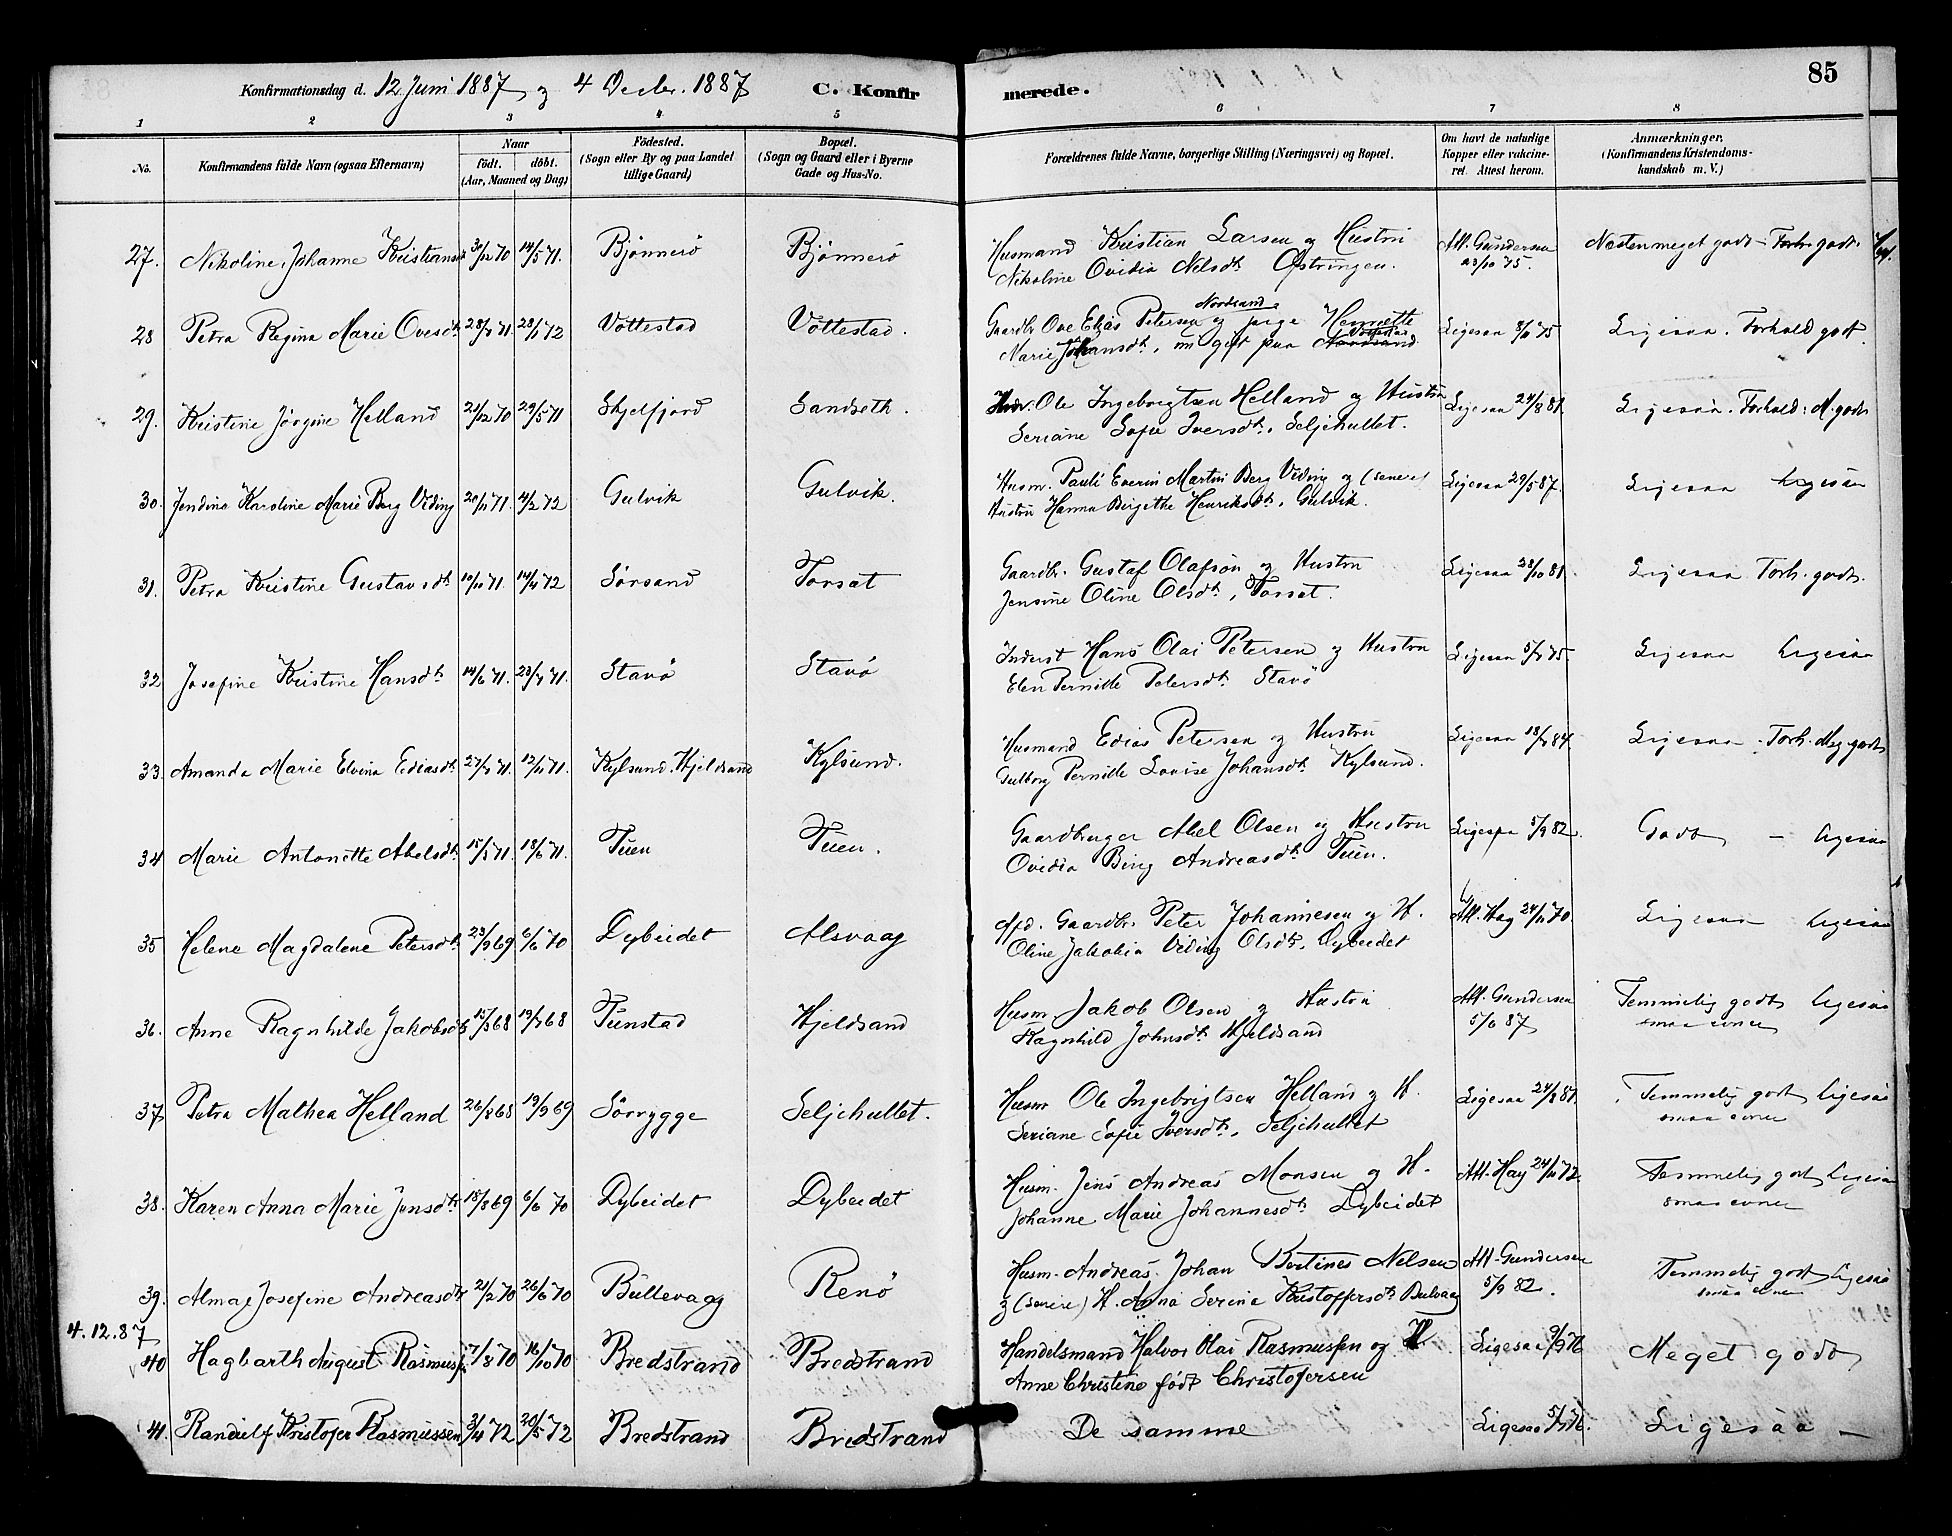 85
Konfirmationsdag d. 12 Juni 1887 og 4 Decbr. 1887 C. Konfirmerede.
1 2 3 4 5 6 7 8
No. Konfirmandens fulde Navn (ogsaa Efternavn) Naar födt. döbt. (Aar, Maaned og Dag) Födested. (Sogn eller By og paa Landet tillige Gaard) Bopæl. (Sogn og Gaard eller i Byerne Gade og Hus-No. Forældrenes fulde Navne, borgerlige Stilling (Næringsvei) og Bopæl. Om havt de naturlige Kopper eller vakcineret. Attest herom. Anmærkninger. (Konfirmandens Kristendomskundskab m. V.)
27. Nikoline Johanne 30/12 70 14/5 71. Bjönnerö Bjönnerö Husmand Kristian Larsen og Hustru Att. Gundersen Næsten meget godt - Forh. godt.
Nikoline Ovidia Nelsdt. 23/10 75.
28 Petra Regina Marie Ovesdt. 28/1 72 Vottestad Vottestad. Gaardbr. Ove Elias Petersen og pige Henriette Ligesaa Ligesaa. Forhold godt.
Nordsand
Marie Johansdt. nu gift paa
29. Kristine Jörgine Helland 21/12 70 29/5 71 Skjelfjord Sandseth. Ole Ingebrigtsen Helland og Hustru Ligesaa 24/8 81. Ligesaa. Forhold: M. godt
Seriane Sofie Iversdt. Seljehullet.
30. Jendine Karoline Marie Berg Viding 20/11 71. 4/2 72 Gulvik Gulvik. Husm. Pauli Everin Martin Berg Viding og (senere) Ligesaa 29/5 87. Ligesaa Ligesaa
Hustru Hanna Birgithe Henriksdt. Gulvik.
31. Petra Kristine Gustavsdt. 10/11 71. 14/4 72 Sörsand Torsat Gaardbr. Gustaf Olafsön og Hustru Ligesaa 23/10 81. Ligesaa Forh. godt.
Jensine Oline Olsdt., Torsat.
32. Josefine Kristine Hansdt. 14/6 71. 23/7 71. Stavö Stavö Inderst Hans Olai Petersen og Hustru Ligesaa Ligesaa Ligesaa
Elen Pernille Petersdt. Stavö
33. Amanda Marie Elvina Ediasdt. 12/11 71. Kylsund. Hjeldsand Kylsund. Husmand Edias Petersen og Hustru Ligesaa Ligesaa - Forh. Meg. godt
Gulborg Pernille Lovise Johansdt. Kylsund.
34 Marie Antonette Abelsdt. 15/5 71. 18/6 71. Tuen Tuen. Gaardbruger Abel Olsen og Hustru Ligesaa 5/9 82. Godt - Ligesaa
Ovidia Berg Andreasdt. Tuen.
35 Helene Magdalene Petersdt. 23/9 69 6/6 70 Dybeidet Alsvaag Afd. Gaardbr. Peter Johannesen og H. Att. Hay 24/11 70. Ligesaa Ligesaa
Oline Jakobia Viding Olsdt. Dybeidet
36. Anne Ragnhilde Jakobsdt. 19/7 68 Tunstad Hjeldsand Husm. Jakob Olsen og Hustru Att. Gundersen Temmelig godt Ligesaa
Ragnhild Johnsdt. Hjeldsand 5/6 87 smaa evner
37 Petra Mathea Helland 26/8 68 19/9 69 Sörrygge Seljehullet. Husm. Ole Ingebrigtsen Helland og H. Ligesaa 24/8 81. Temmelig godt Ligesaa
Seriane Sofie Iversdt., Seljehullet smaa evner
38. Karen Anna Marie Jensdt. 15/8 69 6/6 70 Dybeidet Dybeidet Husm. Jens Andreas Monsen og H. Att. Hay 24/11 72. Temmelig godt Ligesaa
Johanne Marie Johannesdt. Dybeidet smaa evner
39. Alma Josefine Andreasdt 21/2 70 26/6 70 Bullevaag Renö Husm. Andreas Johan Bertines Nelsen Att. Gundersen Temmelig godt Ligesaa
og (senere) H. Anna Serina Kristoffersdt. 5/9 82. smaa evner
4.12.87
40 Hagbarth August Rasmussen 7/8 70 16/10 70 Bredstrand Bredstrand Handelsmand Halvor Olai Rasmussen og H. Ligesaa Meget godt
Anne Christine född Christofersen
41. Randulf Kristofer Rasmussen 3/4 72 20/5 72 Bredstrand Bredstrand De samme Ligesaa Ligesaa